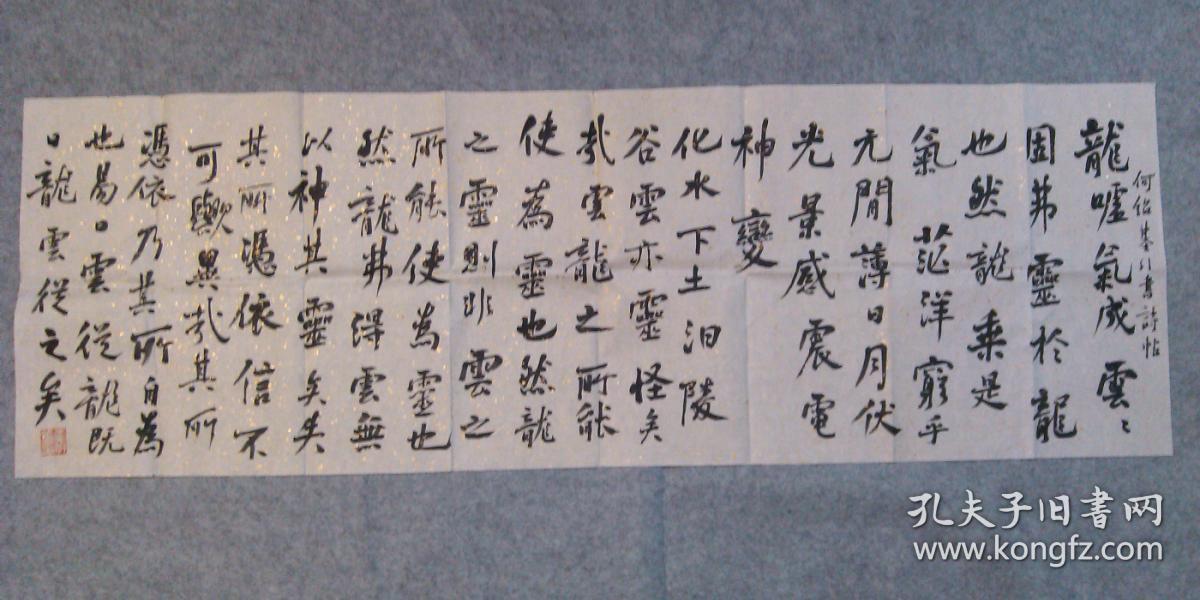 何绍基行書詩帖
龍噓氣成雲〻
固弗靈於龍
也然龍乘是
氣茫洋窮乎
元間薄日月伏
光景感震電
神變
化水下土汩陵
谷雲亦靈怪矣
哉雲龍之所能
使為靈也然龍
之靈則非雲之
所能使為靈也
然龍弗得雲無
以神其靈矣失
其所憑依信不
可歟異哉其所
憑依乃其所自為
也易曰雲從龍既
曰龍雲從之矣
孔夫子旧书网
www.kongfz.com